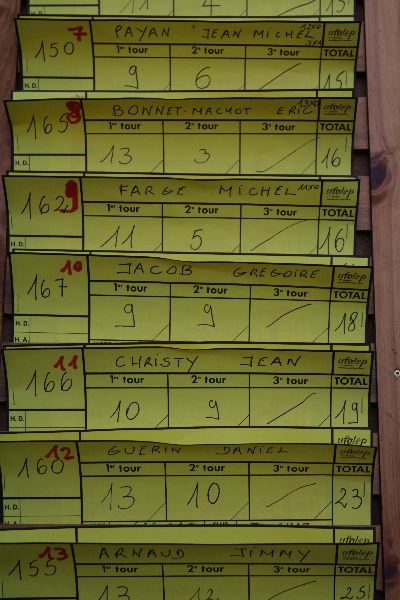 11 4 15
7
150 PAYAN JEAN MICHEL 12x0 3x1 ufolep
1er tour 2e tour 3e tour TOTAL
9 6 15
H.D.
8
165 BONNET-MACHOT ERIC 13x0 ufolep
1er tour 2e tour 3e tour TOTAL
13 3 16
H.D.
9
162 FARGE MICHEL 11x0 ufolep
1er tour 2e tour 3e tour TOTAL
11 5 16
H.D.
10
167 JACOB GREGOIRE ufolep
1er tour 2e tour 3e tour TOTAL
9 9 18
H.D.
H.A.
11
166 CHRISTY JEAN ufolep
1er tour 2e tour 3e tour TOTAL
10 9 19
H.D.
ufolep
12
160 GUERIN DANIEL ufolep
1er tour 2e tour 3e tour TOTAL
13 10 23
H.D.
H.A.
ufolep
13
155 ARNAUD JIMMY ufolep
1er tour 2e tour 3e tour TOTAL
13 12 25